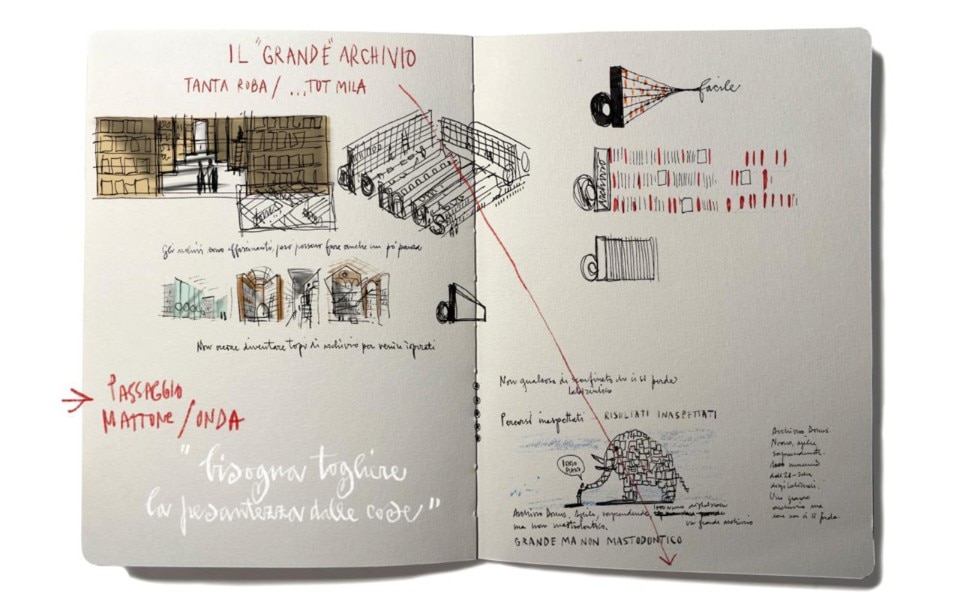 IL "GRANDE" ARCHIVIO
TANTA ROBA / ...TOT MILA
Gli archivi sono affascinanti, però possono fare anche un pò paura
Non occorre diventare topi di archivio per venire ispirati
PASSAGGIO
MATTONE / ONDA
"bisogna togliere
la pesantezza dalle cose"
facile
Non qualcosa di sconfinato in cui ci si perde
labirintico
Percorsi inaspettati RISULTATI INASPETTATI
Archivio Domus, Agile, sorprendente
ma non mastodontico.
un grande archivio
GRANDE MA NON MASTODONTICO
Archivio Domus.
Nuovo, agile
sorprendente.
Un grande
archivio ma
non ci si perde